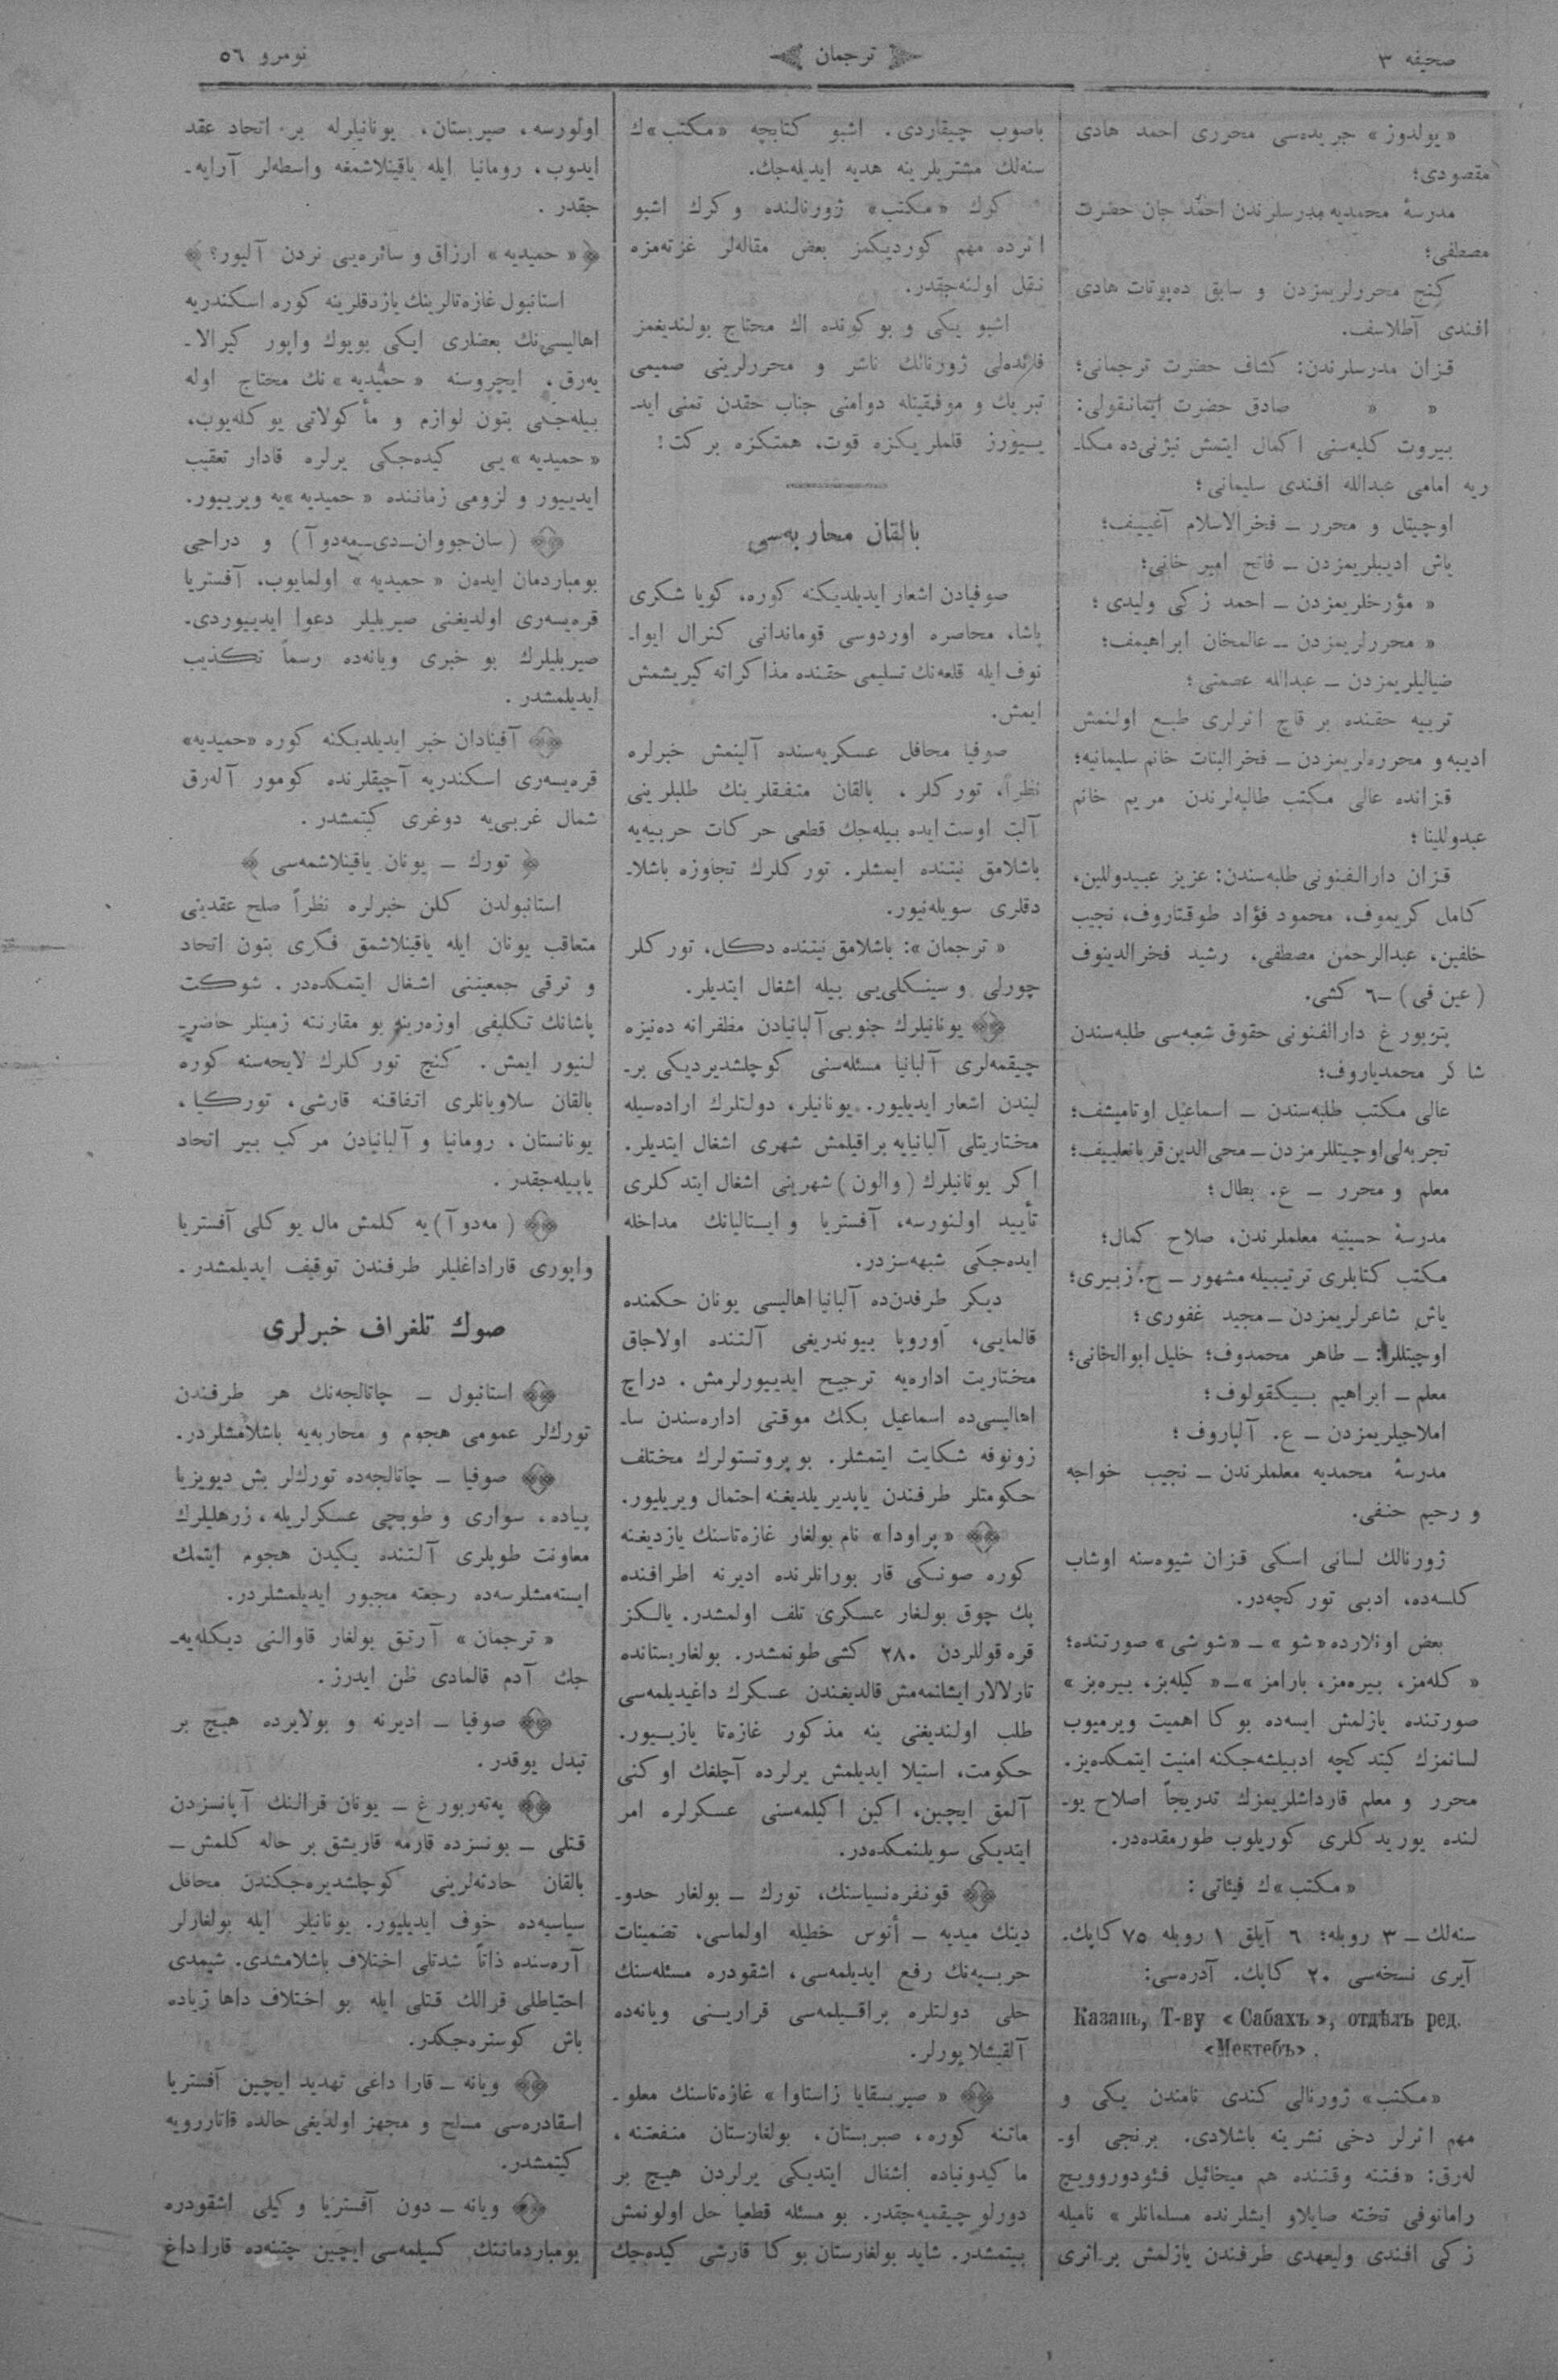 صحيفه ٣
ترجمان
نومرو ٥٦
« يولدوز » جريده‌سى محررى احمد هادى
مقصودى؛
مدرسهٔ محمديه مدرسلرندن احمد جان حضرت
مصطفى؛
كنج محررلريمزدن و سابق ده‌پوتات هادى
افندى آطلاسف.
قزان مدرسلرندن: كشاف حضرت ترجمانى؛
« « صادق حضرت ايمانقولى:
بيروت كليه‌سنى اكمال ايتمش نيژنى‌ده مكا-
ريه امامى عبدالله افندى سليمانى؛
اوچيتل و محرر – فخرالاسلام آغييف؛
ياش اديبلريمزدن – فاتح امير خانى؛
« مؤرخلريمزدن – احمد زكى وليدى؛
« محررلريمزدن – عالمخان ابراهيمف؛
ضياليلريمزدن – عبدالله عصمتى؛
تربيه حقنده بر قاچ اثرلرى طبع اولنمش
اديبه و محرره‌لريمزدن – فخرالبنات خانم سليمانيه؛
قزانده عالى مكتب طالبه‌لرندن مريم خانم
عبدوللينا؛
قزان دارالفنونى طلبه‌سندن: عزيز عبيدوللين،
كامل كريموف، محمود فؤاد طوقتاروف، نجيب
خلفين، عبدالرحمن مصطفى، رشيد فخرالدينوف
(عين فى) –٦ كشى.
پتربورغ دارالفنونى حقوق شعبه‌سى طلبه‌سندن
شاكر محمدياروف؛
عالى مكتب طلبه‌سندن – اسماعيل اوتاميشف؛
تجربه‌لى اوچيتللرمزدن – محى الدين قربانعلييف؛
معلم و محرر – ع. بطال؛
مدرسهٔ حسينيه معلملرندن، صلاح كمال؛
مكتب كتابلرى ترتيبيله مشهور – ح. زبيرى؛
ياش شاعرلريمزدن – مجيد غفورى؛
اوچيتللر: – طاهر محمدوف؛ خليل ابوالخانى؛
معلم – ابراهيم بيكقولوف؛
املاجيلريمزدن – ع. آلپاروف؛
مدرسهٔ محمديه معلملرندن – نجيب خواجه
و رحيم حنفى.
ژورنالك لسانى اسكى قزان شيوه‌سنه اوشاب
كلسه‌ده، ادبى توركچه‌در.
بعض اونلارده «شو» – «شوشى» صورتنده؛
« كله‌مز، بيره‌مز، بارامز » – « كيله‌بز، بيره‌بز »
صورتنده يازلمش ايسه‌ده بوكا اهميت ويرميوب
لسانمزك كيتدكچه ادبيلشه‌جكنه امنيت ايتمكده‌يز.
محرر و معلم قارداشلريمزك تدريجاً اصلاح يو-
لنده يوريدكلرى كوريلوب طورمقده‌در.
«مكتب»ك فيئاتى:
سنه‌لك – ٣ روبله؛ ٦ آيلق ١ روبله ٧٥ كاپك.
آيرى نسخه‌سى ٢٠ كاپك. آدره‌سى:
Казань, Т-ву «Сабахъ», отдѣлъ ред.
«Мектебъ».
«مكتب» ژورنالى كندى نامندن يكى و
مهم اثرلر دخى نشرينه باشلادى. برنجى او-
له‌رق: «فتنه وقتنده هم ميخائيل فئودوروويچ
رامانوفى تخته صايلاو ايشلرنده مسلمانلر» ناميله
زكى افندى وليعهدى طرفندن يازلمش بر اثرى
باصوب چيقاردى. اشبو كتابچه «مكتب»ك
سنه‌لك مشتريلرينه هديه ايديله‌جك.
كرك «مكتب» ژورنالنده و كرك اشبو
اثرده مهم كورديكمز بعض مقاله‌لر غزته‌مزه
نقل اولنه‌جقدر.
اشبو يكى و بو كونده اك محتاج بولنديغمز
فائده‌لى ژورنالك ناشر و محررلرينى صميمى
تبريك و موفقيتله دوامنى جناب حقدن تمنى ايد-
ييورز قلملريكزه قوت، همتكزه بركت!
بالقان محاربه‌سى
صوفيادن اشعار ايديلديكنه كوره، كويا شكرى
پاشا، محاصره اوردوسى قوماندانى كنرال ايوا-
نوف ايله قلعه‌نك تسليمى حقنده مذاكراته كيريشمش
ايمش.
صوفيا محافل عسكريه‌سنده آلينمش خبرلره
نظراً، توركلر، بالقان متفقلرينك طلبلرينى
آلت اوست ايده بيله‌جك قطعى حركات حربيه‌يه
باشلامق نيتنده ايمشلر. توركلرك تجاوزه باشلا-
دقلرى سويله‌نيور.
« ترجمان »: باشلامق نيتنده دكل، توركلر
چورلى و سينكلى‌يى بيله اشغال ايتديلر.
يونانيلرك جنوبى آلبانيادن مظفرانه ده‌نيزه
چيقمه‌لرى آلبانيا مسئله‌سنى كوچلشديرديكى بر-
ليندن اشعار ايديليور. يونانيلر، دولتلرك اراده‌سيله
مختاريتلى آلبانيايه براقيلمش شهرى اشغال ايتديلر.
اكر يونانيلرك (والون) شهرينى اشغال ايتدكلرى
تأييد اولنورسه، آفستريا و ايتاليانك مداخله
ايده‌جكى شبهه‌سزدر.
ديكر طرفدن‌ده آلبانيا اهاليسى يونان حكمنده
قالمايى، آوروپا بيوندريغى آلتنده اولاجاق
مختاريت اداره‌يه ترجيح ايدييورلرمش. دراچ
اهاليسى‌ده اسماعيل بكك موقتى اداره‌سندن سا-
زونوفه شكايت ايتمشلر. بو پروتستولرك مختلف
حكومتلر طرفندن ياپديريلديغنه احتمال ويريليور.
« پراودا » نام بولغار غازه‌تاسنك يازديغنه
كوره صونكى قار بورانلرنده اديرنه اطرافنده
پك چوق بولغار عسكرى تلف اولمشدر. يالكز
قره قوللردن ٢٨٠ كشى طونمشدر. بولغارستانده
تارلالار ايشلنمه‌مش قالديغندن عسكرك داغيديلمه‌سى
طلب اولنديغى ينه مذكور غازه‌تا يازييور.
حكومت، استيلا ايديلمش يرلرده آچلغك اوكنى
آلمق ايچين، اكين اكيلمه‌سنى عسكرلره امر
ايتديكى سويلنمكده‌در.
قونفره‌نسياسنك، تورك – بولغار حدو-
دينك ميديه – أنوس خطيله اولماسى، تضمينات
حربيه‌نك رفع ايديلمه‌سى، اشقودره مسئله‌سنك
حلى دولتلره براقيلمه‌سى قرارينى ويانه‌ده
آلقيشلايورلر.
« صيربسقايا زاستاوا » غازه‌تاسنك معلو-
ماتنه كوره، صيربستان، بولغارستان منفعتنه،
ماكيدونياده اشغال ايتديكى يرلردن هيچ بر
دورلو چيقميه‌جقدر. بو مسئله قطعيا حل اولونمش
بيتمشدر. شايد بولغارستان بوكا قارشى كيده‌جك
اولورسه، صيربستان، يونانيلرله بر اتحاد عقد
ايدوب، رومانيا ايله ياقينلاشمغه واسطه‌لر آرايه-
جقدر.
« حميديه » ارزاق و سائره‌يى نردن آليور؟
استانبول غازه‌تالرينك يازدقلرينه كوره اسكندريه
اهاليسى‌نك بعضلرى ايكى بويوك واپور كيرالا-
يه‌رق، ايچروسنه «حميديه»نك محتاج اوله
بيله‌جكى بتون لوازم و مأكولاتى يوكله‌يوب،
«حميديه»يى كيده‌جكى يرلره قادار تعقيب
ايدييور و لزومى زماننده «حميديه»يه ويرييور.
(سان‌جووان–دى–مه‌دوآ) و دراجى
بومباردمان ايده‌ن «حميديه» اولمايوب، آفستريا
قره‌يسه‌رى اولديغنى صيربليلر دعوا ايدييوردى.
صيربليلرك بو خبرى ويانه‌ده رسماً تكذيب
ايديلمشدر.
آفينادان خبر ايديلديكنه كوره «حميديه»
قره‌يسه‌رى اسكندريه آچيقلرنده كومور آله‌رق
شمال غربى‌يه دوغرى كيتمشدر.
تورك – يونان ياقينلاشمه‌سى
استانبولدن كلن خبرلره نظراً صلح عقدينى
متعاقب يونان ايله ياقينلاشمق فكرى بتون اتحاد
و ترقى جمعيتنى اشغال ايتمكده‌در. شوكت
پاشانك تكليفى اوزه‌رينه بو مقارنته زمينلر حاضر-
لنيور ايمش. كنج توركلرك لايحه‌سنه كوره
بالقان سلاويانلرى اتفاقنه قارشى، توركيا،
يونانستان، رومانيا و آلبانيادن مركب بير اتحاد
ياپيله‌جقدر.
(مه‌دوآ)يه كلمش مال يوكلى آفستريا
واپورى قاراداغليلر طرفندن توقيف ايديلمشدر.
صوك تلغراف خبرلرى
استانبول – چاتالجه‌نك هر طرفندن
تورك‌لر عمومى هجوم و محاربه‌يه باشلامشلردر.
صوفيا – چاتالجه‌ده تورك‌لر بش ديويزيا
پياده، سوارى و طوپچى عسكرلريله، زرهليلرك
معاونت طوپلرى آلتنده يكيدن هجوم ايتمك
ايسته‌مشلرسه‌ده رجعته مجبور ايديلمشلردر.
« ترجمان » آرتق بولغار قاوالنى ديكله‌يه-
جك آدم قالمادى ظن ايدرز.
صوفيا – اديرنه و بولايرده هيچ بر
تبدل يوقدر.
په‌ته‌ربورغ – يونان قرالنك آپانسزدن
قتلى – بونسزده قارمه قاريشق بر حاله كلمش –
بالقان حادثه‌لرينى كوچلشديره‌جكندن محافل
سياسيه‌ده خوف ايديليور. يونانيلر ايله بولغارلر
آره‌سنده ذاتاً شدتلى اختلاف باشلامشدى. شيمدى
احتياطلى قرالك قتلى ايله بو اختلاف داها زياده
باش كوستره‌جكدر.
ويانه – قاراداغى تهديد ايچين آفستريا
اسقادره‌سى مسلح و مجهز اولديغى حالده قاتاررويه
كيتمشدر.
ويانه – دون آفستريا وكيلى اشقودره
بومباردماننك كسيلمه‌سى ايچين چتينه‌ده قاراداغ